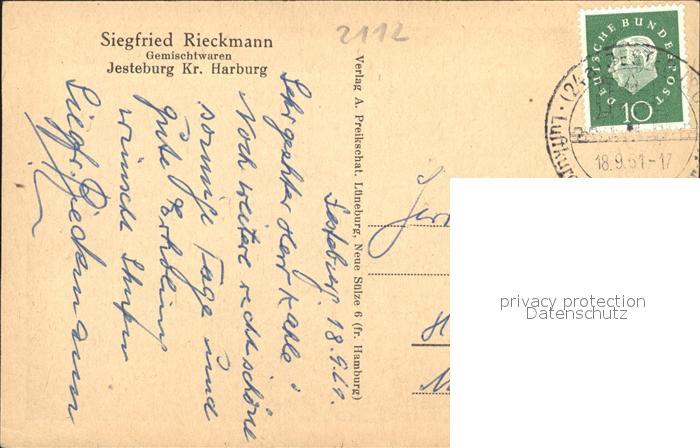 Siegfried Rieckmann
Gemischtwaren
Jesteburg Kr. Harburg
2112
Jesteburg 18.9.61.
Sehr geehrter Herr Kahle!
Noch weitere recht schöne
sonnige Tage und
gute Erholung
wünscht Ihnen
Siegfr. Rieckmann
Verlag A. Preikschat. Lüneburg, Neue Sülze 6 (fr. Hamburg)
DEUTSCHE BUNDESPOST
10
18.9.61-17
privacy protection
Datenschutz